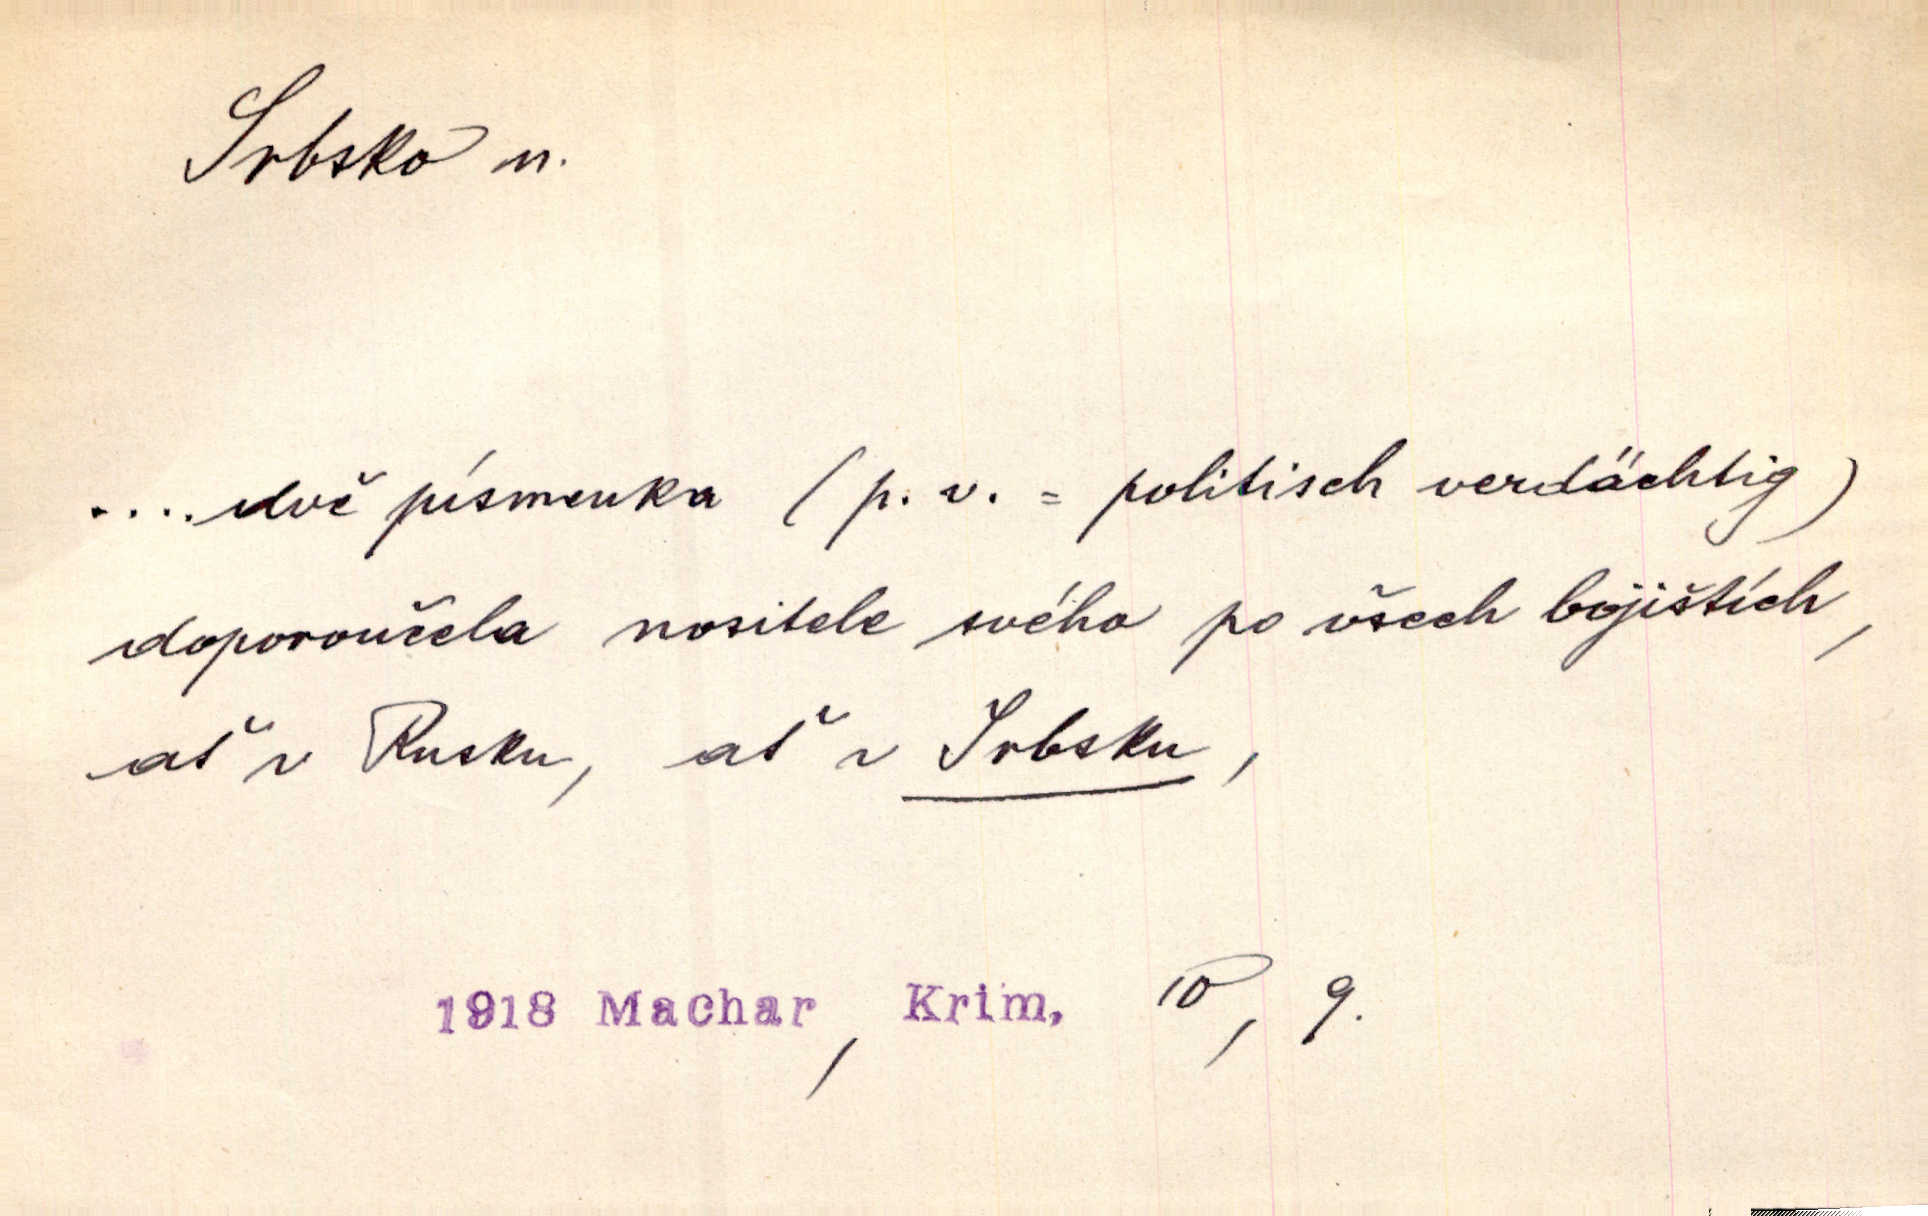 Srbsko n.
....dvě písmenka (p. v. = politisch verdächtig)
doporoučela nositele svého po všech bojištích,
ať v Rusku, ať v Srbsku,
1918 Machar, Krim, 10, 9.